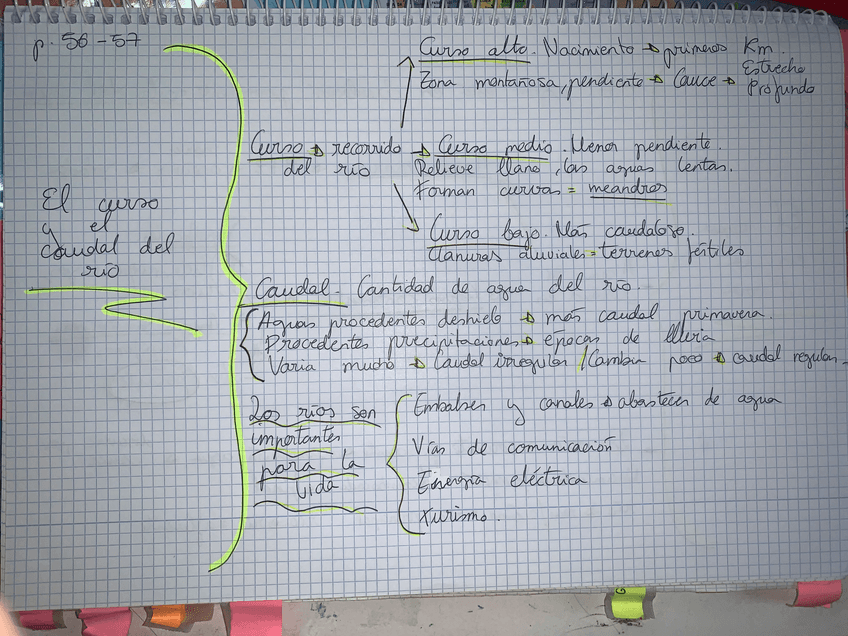 p. 56-57
Curso alto. Nacimiento → primeros Km.
Zona montañosa, pendiente → Cauce → Estrecho
Profundo
Curso → recorrido → Curso medio. Menor pendiente.
del río
Relieve llano, las aguas lentas.
Forman curvas = meandros
Curso bajo. Más caudaloso.
Llanuras aluviales = terrenos fértiles
El curso
y el
caudal del
río
Caudal - Cantidad de agua del río.
Aguas procedentes deshielo → más caudal primavera.
Procedentes precipitaciones → épocas de lluvia
Varia mucho → Caudal irregular / Cambia poco → caudal regular.
Los ríos son
importantes
para la
vida
Embalses y canales → abastecer de agua
Vías de comunicación
Energía eléctrica
Turismo.